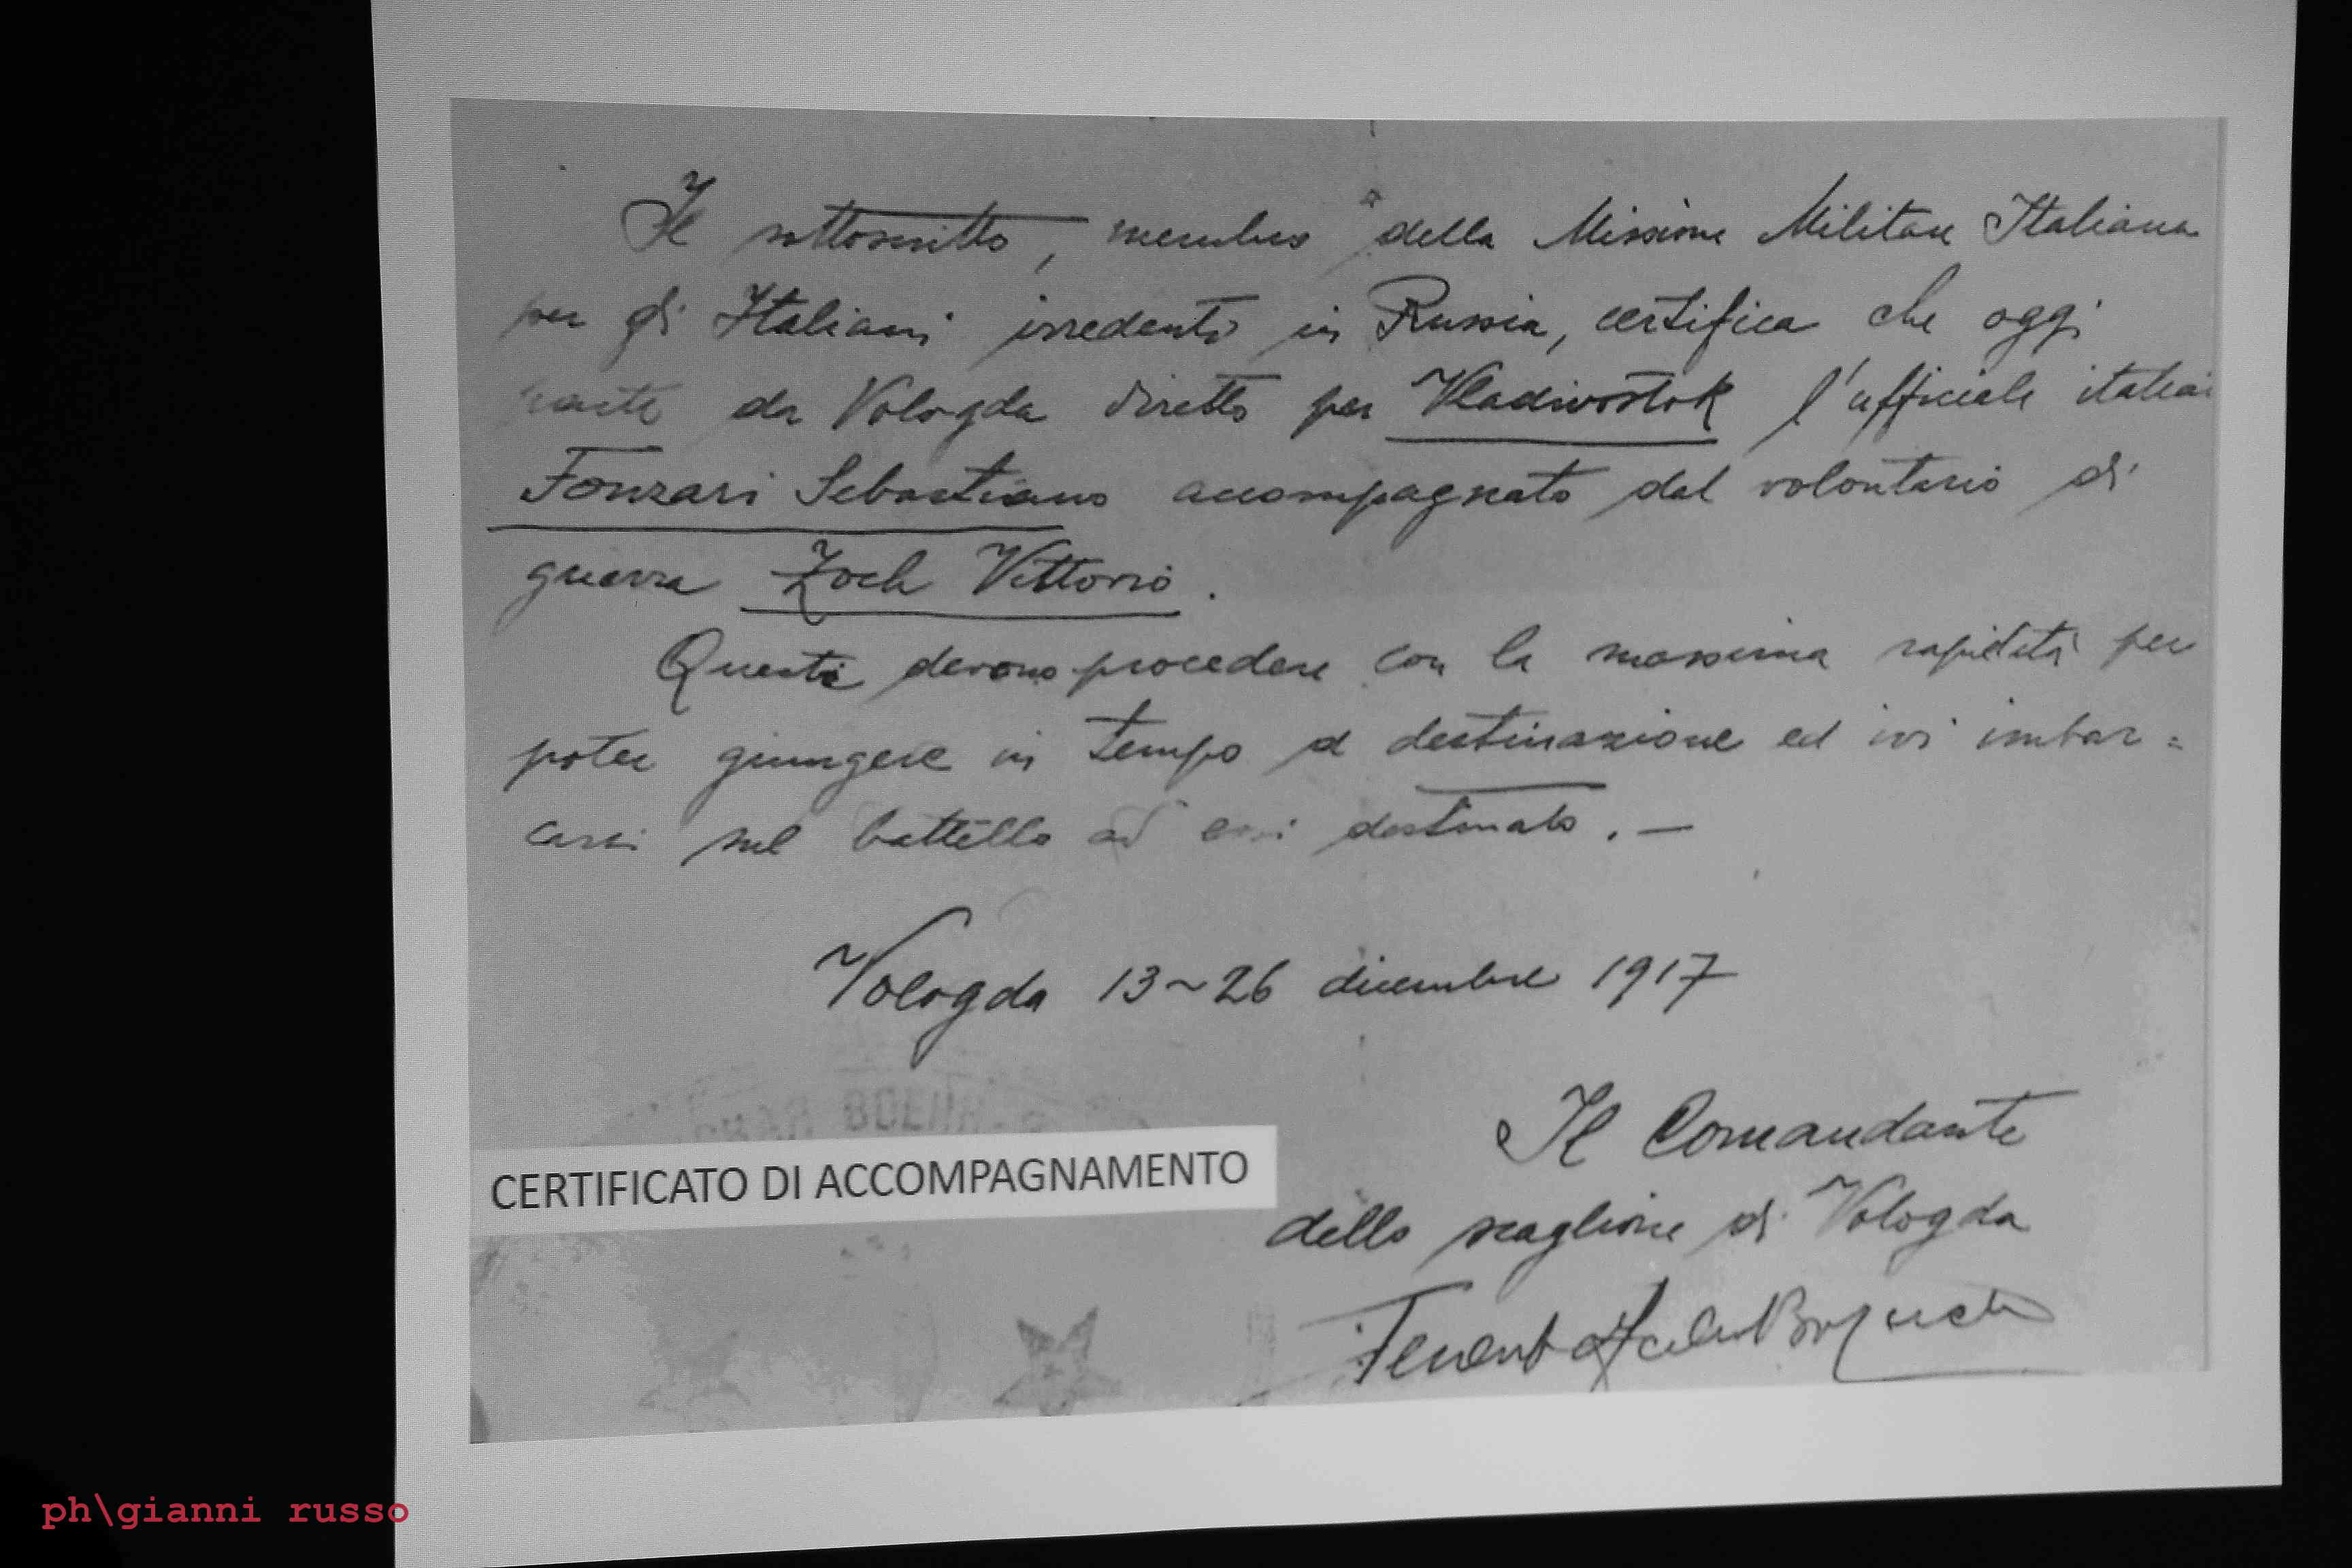 Il sottoscritto, membro della Missione Militare Italiana
per gli Italiani irredenti in Russia, certifica che oggi
parte da Vologda diretto per Vladivostok l'ufficiale
Fonzari Sebastiano accompagnato dal volontario di
guerra Zoch Vittorio.
Questi devono procedere con la massima rapidità per
poter giungere in tempo a destinazione ed ivi imbar=
carsi sul battello ad essi destinato. —
Vologda 13~26 dicembre 1917
Il Comandante
dello scaglione di Vologda
CERTIFICATO DI ACCOMPAGNAMENTO
ph\gianni russo